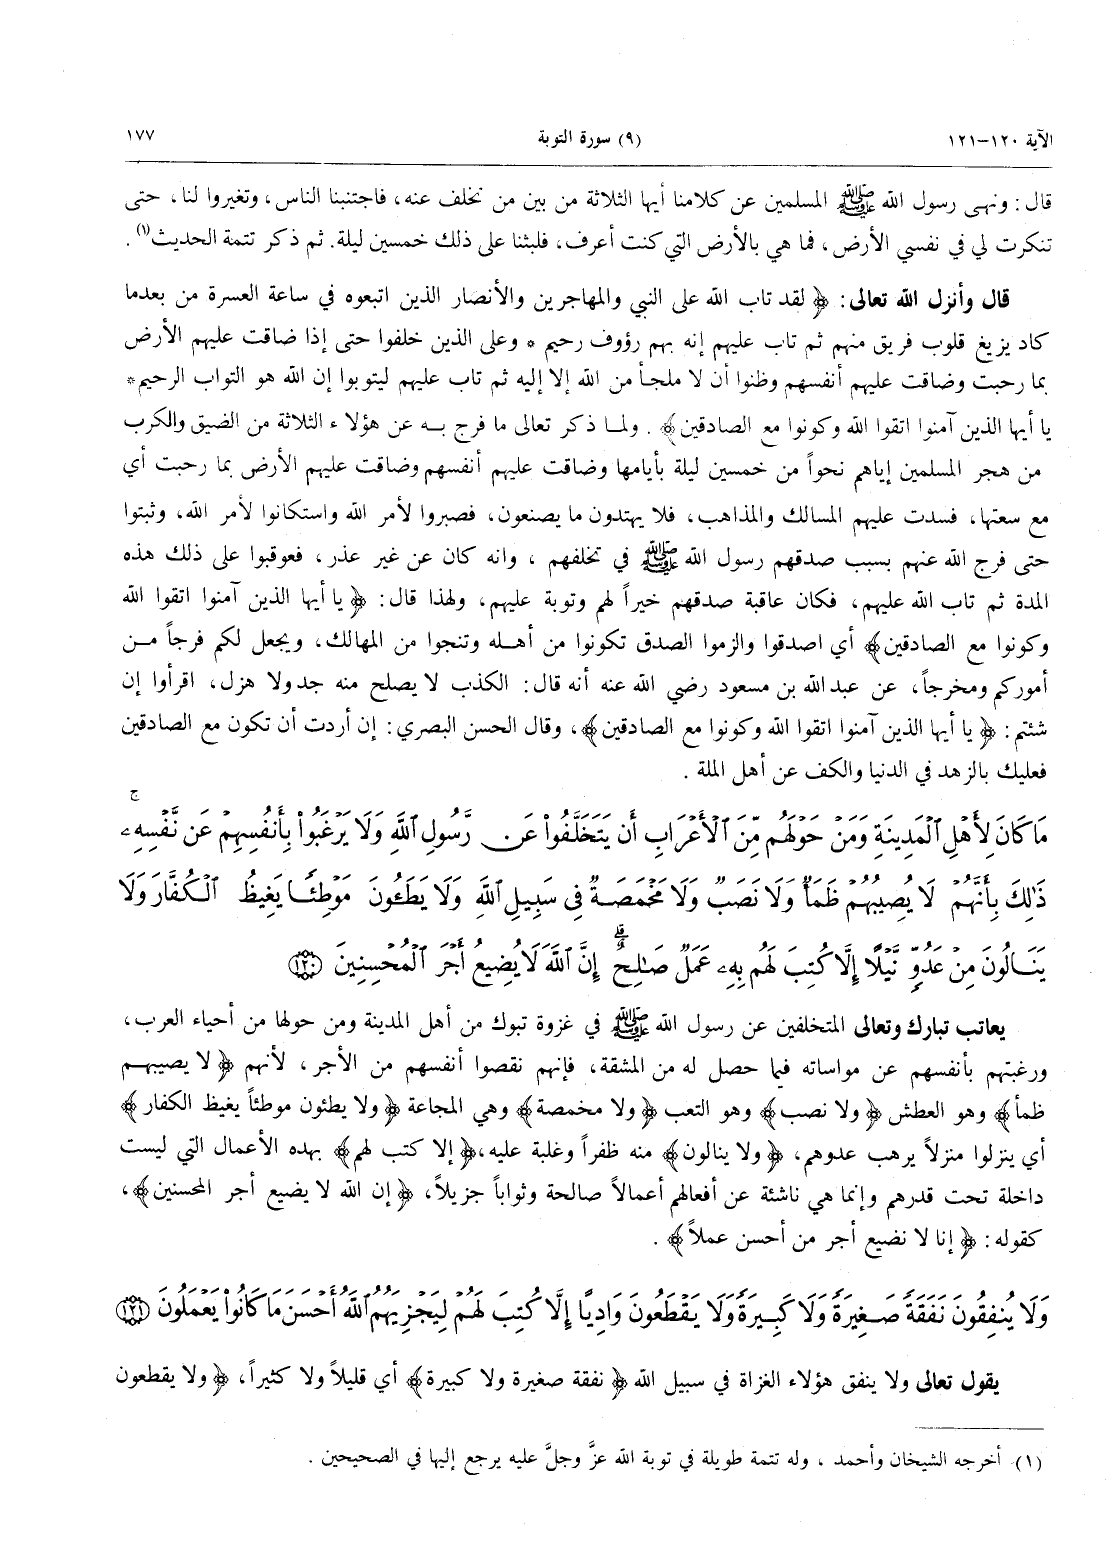 الآية ١٢٠-١٢١ (٩) سورة التوبة ١٧٧
قال : ونهى رسول الله ﷺ المسلمين عن كلامنا أيها الثلاثة من بين من تخلف عنه، فاجتنبنا الناس، وتغيروا لنا، حتى
تنكرت لي في نفسي الأرض ، فما هي بالأرض التي كنت أعرف، فلبثنا على ذلك خمسين ليلة. ثم ذكر تتمة الحديث(١) .
قال وأنزل الله تعالى: ﴿ لقد تاب الله على النبي والمهاجرين والأنصار الذين اتبعوه في ساعة العسرة من بعدما
كاد يزيغ قلوب فريق منهم ثم تاب عليهم إنه بهم رؤوف رحيم * وعلى الذين خلفوا حتى إذا ضاقت عليهم الأرض
بما رحبت وضاقت عليهم أنفسهم وظنوا أن لا ملجأ من الله إلا إليه ثم تاب عليهم ليتوبوا إن الله هو التواب الرحيم *
يا أيها الذين آمنوا اتقوا الله وكونوا مع الصادقين﴾ . ولما ذكر تعالى ما فرج به عن هؤلاء الثلاثة من الضيق والكرب
من هجر المسلمين إياهم نحواً من خمسين ليلة بأيامها وضاقت عليهم أنفسهم وضاقت عليهم الأرض بما رحبت أي
مع سعتها، فسدت عليهم المسالك والمذاهب، فلا يهتدون ما يصنعون، فصبروا لأمر الله واستكانوا لأمر الله، وثبتوا
حتى فرج الله عنهم بسبب صدقهم رسول الله ﷺ في تخلفهم ، وانه كان عن غير عذر ، فعوقبوا على ذلك هذه
المدة ثم تاب الله عليهم، فكان عاقبة صدقهم خيراً لهم وتوبة عليهم، ولهذا قال: ﴿ يا أيها الذين آمنوا اتقوا الله
وكونوا مع الصادقين﴾ أي اصدقوا والزموا الصدق تكونوا من أهله وتنجوا من المهالك، ويجعل لكم فرجاً من
أموركم ومخرجاً، عن عبدالله بن مسعود رضي الله عنه أنه قال: الكذب لا يصلح منه جد ولا هزل، اقرأوا إن
شئتم: ﴿ يا أيها الذين آمنوا اتقوا الله وكونوا مع الصادقين﴾، وقال الحسن البصري: إن أردت أن تكون مع الصادقين
فعليك بالزهد في الدنيا والكف عن أهل الملة .
مَا كَانَ لِأَهْلِ ٱلْمَدِينَةِ وَمَنْ حَوْلَهُم مِّنَ ٱلْأَعْرَابِ أَن يَتَخَلَّفُوا۟ عَن رَّسُولِ ٱللَّهِ وَلَا يَرْغَبُوا۟ بِأَنفُسِهِمْ عَن نَّفْسِهِۦ ۚ
ذَٰلِكَ بِأَنَّهُمْ لَا يُصِيبُهُمْ ظَمَأٌ وَلَا نَصَبٌ وَلَا مَخْمَصَةٌ فِى سَبِيلِ ٱللَّهِ وَلَا يَطَـُٔونَ مَوْطِئًا يَغِيظُ ٱلْكُفَّارَ وَلَا
يَنَالُونَ مِنْ عَدُوٍّ نَّيْلًا إِلَّا كُتِبَ لَهُم بِهِۦ عَمَلٌ صَـٰلِحٌ ۗ إِنَّ ٱللَّهَ لَا يُضِيعُ أَجْرَ ٱلْمُحْسِنِينَ ﴿١٢٠﴾
يعاتب تبارك وتعالى المتخلفين عن رسول الله ﷺ في غزوة تبوك من أهل المدينة ومن حولها من أحياء العرب،
ورغبتهم بأنفسهم عن مواساته فيما حصل له من المشقة، فإنهم نقصوا أنفسهم من الأجر ، لأنهم ﴿ لا يصيبهم
ظمأ﴾ وهو العطش ﴿ ولا نصب﴾ وهو التعب ﴿ ولا مخمصة﴾ وهي المجاعة ﴿ ولا يطئون موطئاً يغيظ الكفار ﴾
أي ينزلوا منزلاً يرهب عدوهم، ﴿ ولا ينالون﴾ منه ظفراً وغلبة عليه، ﴿ إلا كتب لهم﴾ بهذه الأعمال التي ليست
داخلة تحت قدرهم وإنما هي ناشئة عن أفعالهم أعمالاً صالحة وثواباً جزيلاً، ﴿ إن الله لا يضيع أجر المحسنين﴾،
كقوله: ﴿ إنا لا نضيع أجر من أحسن عملاً﴾ .
وَلَا يُنفِقُونَ نَفَقَةً صَغِيرَةً وَلَا كَبِيرَةً وَلَا يَقْطَعُونَ وَادِيًا إِلَّا كُتِبَ لَهُمْ لِيَجْزِيَهُمُ ٱللَّهُ أَحْسَنَ مَا كَانُوا۟ يَعْمَلُونَ ﴿١٢١﴾
يقول تعالى ولا ينفق هؤلاء الغزاة في سبيل الله ﴿ نفقة صغيرة ولا كبيرة﴾ أي قليلاً ولا كثيراً، ﴿ ولا يقطعون
(١) أخرجه الشيخان وأحمد ، وله تتمة طويلة في توبة الله عزَّ وجلَّ عليه يرجع إليها في الصحيحين .